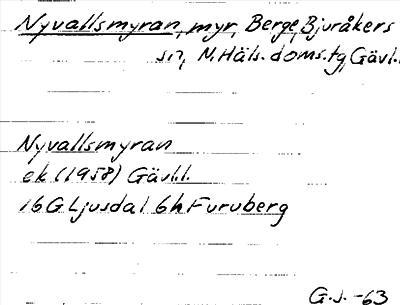 Nyvallsmyran, myr, Berge, Bjuråkers
sn, N.Häls. doms.tg, Gävl.l.
Nyvallsmyran
ek (1958) Gävl.l.
16G Ljusdal 6h Furuberg
G.J. -63